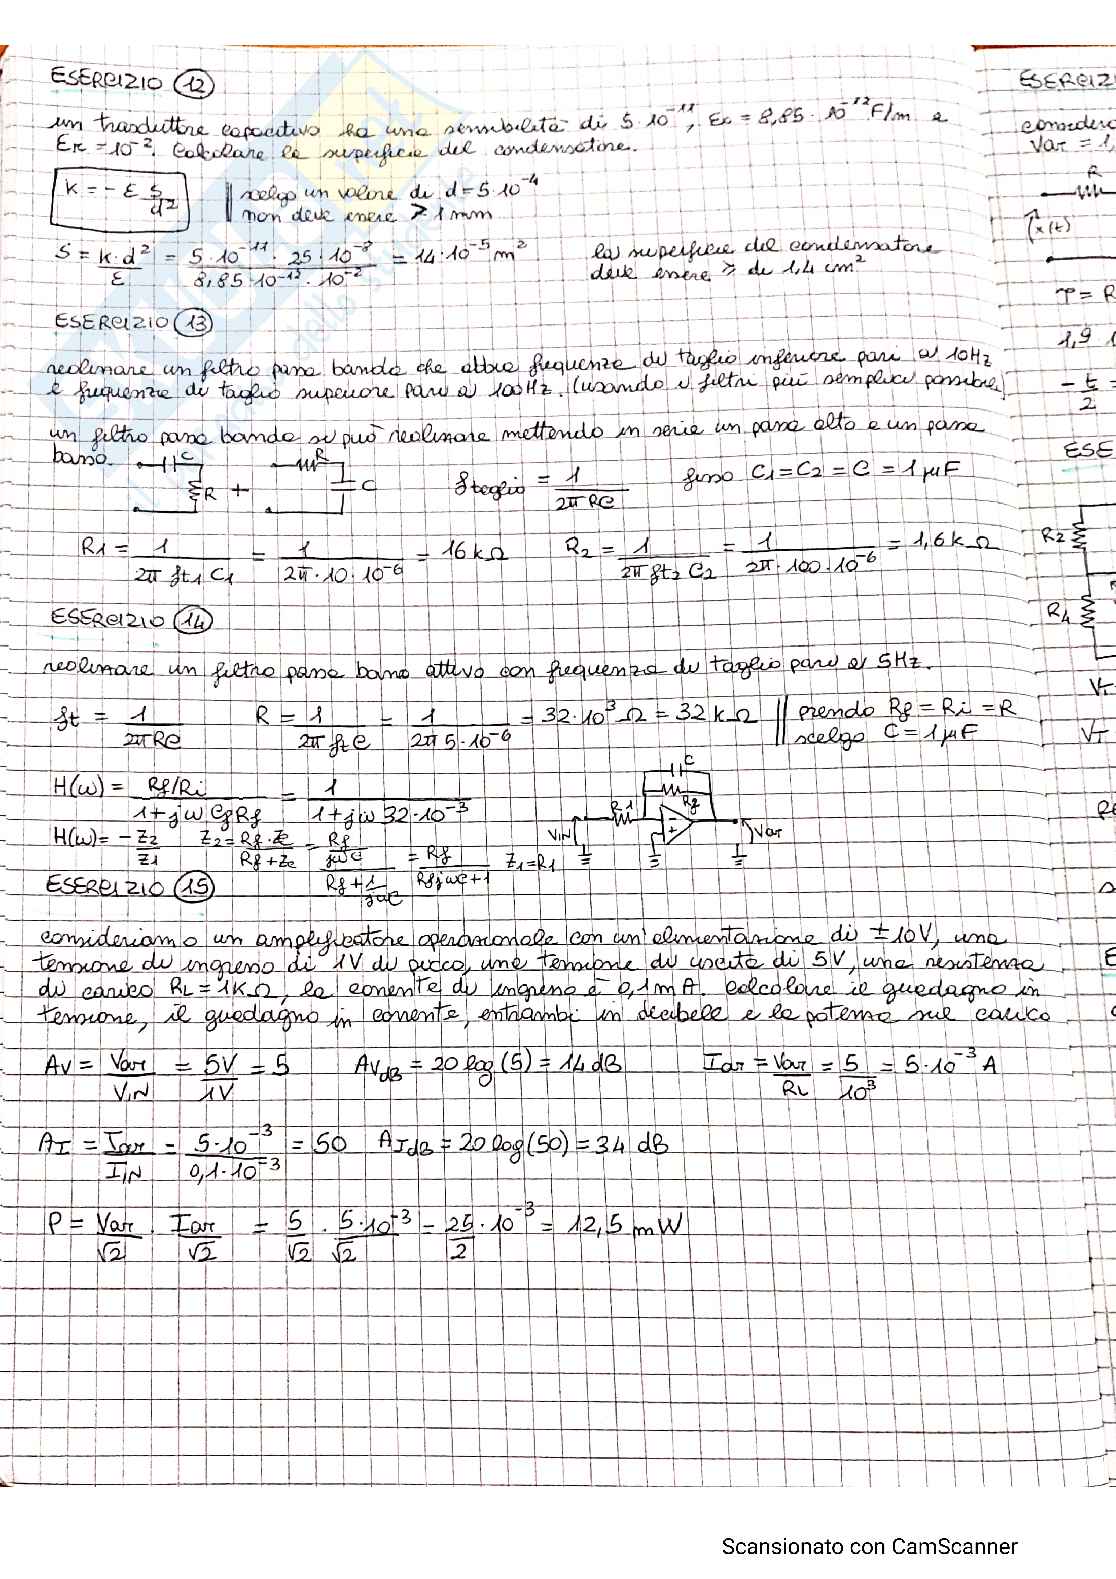 ESERCIZIO 12
un trasduttore capacitivo ha una sensibilità di 5·10⁻¹¹, εo = 8,85·10⁻¹² F/m e
εr = 10⁻². Calcolare la superficie del condensatore.
K = - ε S/d² || scelgo un valore di d = 5·10⁻⁴
non deve essere > 1mm
S = K·d²/ε = 5·10⁻¹¹ · 25·10⁻⁸ / 8,85·10⁻¹² · 10⁻² = 14·10⁻⁵ m² la superficie del condensatore
deve essere ≥ di 1,4 cm²
ESERCIZIO 13
realizzare un filtro passa banda che abbia frequenza di taglio inferiore pari a 10Hz
e frequenza di taglio superiore pari a 100Hz. (usando i filtri più semplici possibile)
un filtro passa banda si può realizzare mettendo in serie un passa alto e un passa
basso. C R + R C f taglio = 1/2π RC fisso C1 = C2 = C = 1 μF
R1 = 1/2π ft1 C1 = 1/2π·10·10⁻⁶ = 16 kΩ R2 = 1/2π ft2 C2 = 1/2π·100·10⁻⁶ = 1,6 kΩ
ESERCIZIO 14
realizzare un filtro passa basso attivo con frequenza di taglio pari a 5Hz.
ft = 1/2π RC R = 1/2π ft C = 1/2π 5·10⁻⁶ = 32·10³ Ω = 32 kΩ || prendo Rf = Ri = R
scelgo C = 1 μF
H(ω) = Rf/Ri / 1+jω Cf Rf = 1 / 1+jω 32·10⁻³ C Rf R1 VIN Vout
H(ω) = -Z2/Z1 Z2 = Rf·Zc / Rf+Zc = Rf/jωC / Rf + 1/jωC = Rf / RfjωC+1 Z1 = R1
ESERCIZIO 15
consideriamo un amplificatore operazionale con un'alimentazione di ±10V, una
tensione di ingresso di 1V di picco, una tensione di uscita di 5V, una resistenza
di carico RL = 1kΩ, la corrente di ingresso è 0,1mA. Calcolare il guadagno in
tensione, il guadagno in corrente, entrambi in decibel e la potenza sul carico
AV = Vout/VIN = 5V/1V = 5 AVdB = 20 log(5) = 14 dB Iout = Vout/RL = 5/10³ = 5·10⁻³ A
AI = Iout/IIN = 5·10⁻³ / 0,1·10⁻³ = 50 AIdB = 20 log(50) = 34 dB
P = Vout/√2 · Iout/√2 = 5/√2 · 5·10⁻³/√2 = 25/2 · 10⁻³ = 12,5 mW
Scansionato con CamScanner